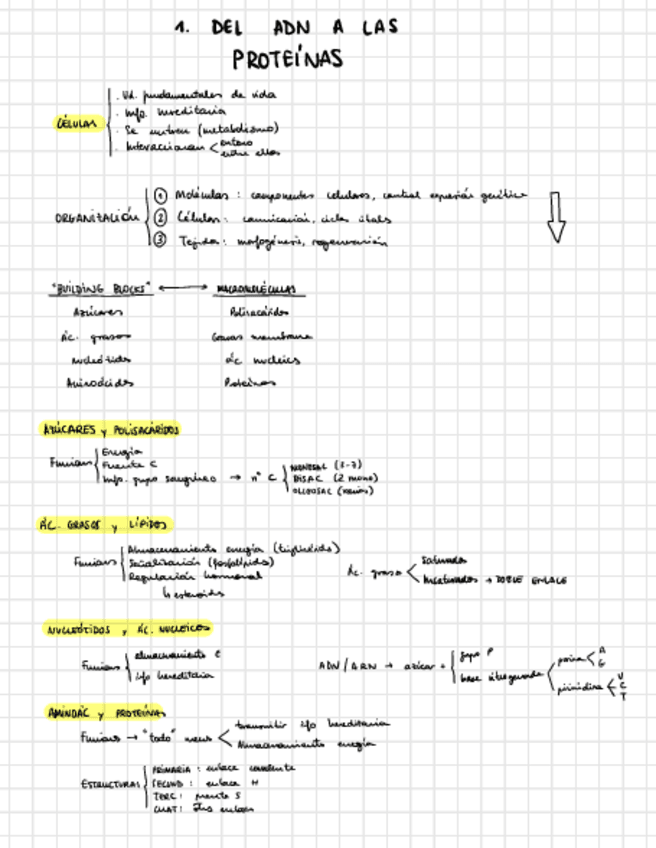 1. DEL ADN A LAS
PROTEÍNAS
CÉLULAS
. Ud. fundamentales de vida
. Info. hereditaria
. Se nutren (metabolismo)
. Interaccionan < entorno
entre ellas
ORGANIZACIÓN
① Moléculas: componentes celulares, control expresión genética
② Células: comunicación, ciclos vitales
③ Tejidos: morfogénesis, regeneración
"BUILDING BLOCKS" ↔ MACROMOLÉCULAS
Azúcares Polisacáridos
Ác. grasos Grasas membrana
Nucleótidos ác nucleics
Aminoácidos Proteínas
AZÚCARES y POLISACÁRIDOS
Funciones
Energía
Fuente C
Info. grupo sanguíneo → nº C
MONOSAC (3-7)
DISAC (2 mono)
OLIGOSAC (varios)
ÁC. GRASOS y LÍPIDOS
Funciones
Almacenamiento energía (triglicéridos)
Señalización (fosfolípidos)
Regulación hormonal
↳ esteroides
Ác. grasos < Saturados
Insaturados → DOBLE ENLACE
NUCLEÓTIDOS y ÁC. NUCLEICOS
Funciones
almacenamiento E
info hereditaria
ADN/ARN → azúcar +
grupo P
base nitrogenada
purina < A
G
pirimidina < U
C
T
AMINOÁC y PROTEÍNAS
Funciones → "todo" menos < transmitir info hereditaria
Almacenamiento energía
ESTRUCTURAS
PRIMARIA: enlace covalente
SECUND: enlace H
TERC: puente S
CUAT: otros enlaces